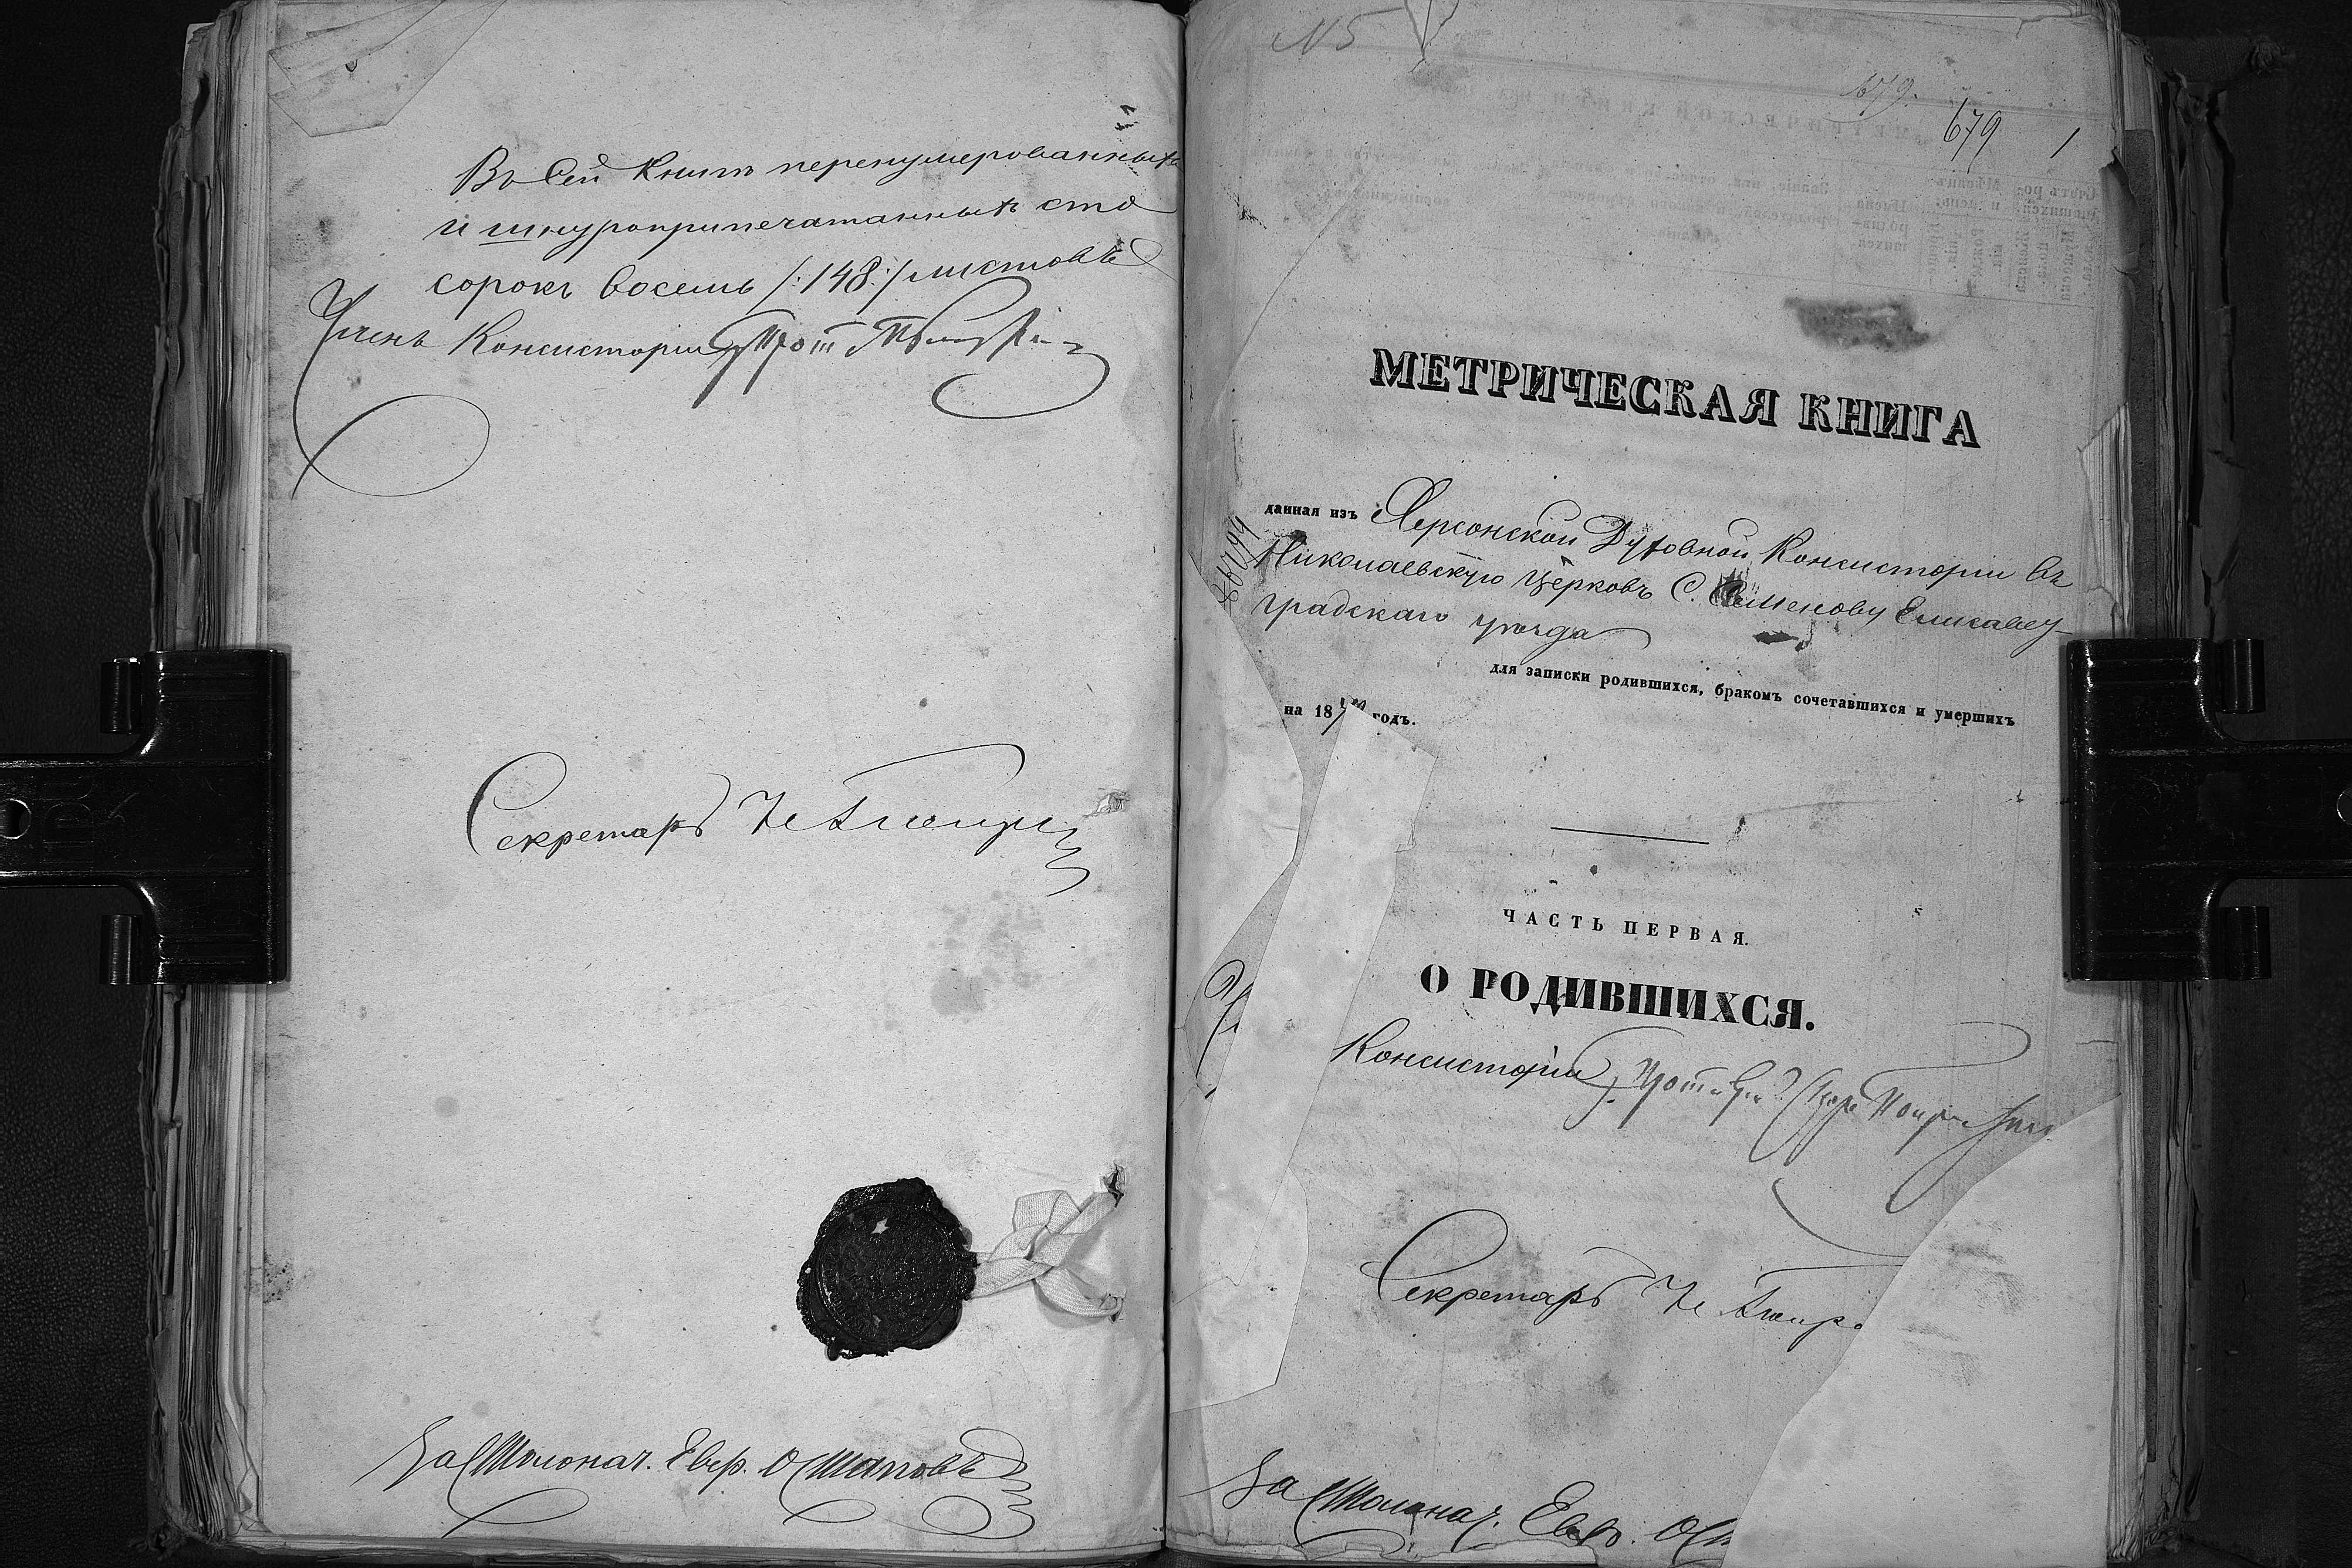 Въ сей книгѣ перенумерованныхъ
и шнуроприпечатанныхъ сто
сорокъ восемь /:148:/ листовъ
Членъ Консисторіи Прот
Секретарь
За Столонач. Евф. Остаповъ
N5
679.
679 1
МЕТРИЧЕСКАЯ КНИГА
данная изъ Херсонской Духовной Консисторіи въ
Николаевскую церковь С. Семеновку Елисавет-
градскаго уѣзда
для записки родившихся, бракомъ сочетавшихся и умершихъ
на 18 годъ.
ЧАСТЬ ПЕРВАЯ.
О РОДИВШИХСЯ.
Консисторіи
Секретарь
За Столонач. Евф. Ост